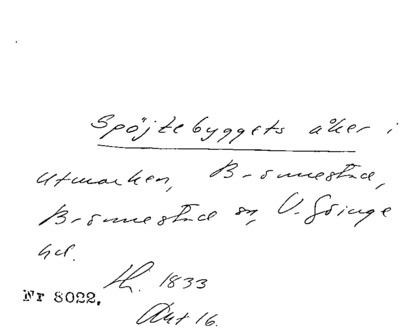 Spöjtebyggets åker i
utmarken, B-smestad,
B-smestad sn, V. Göinge
hd.
Lh. 1833
Nr 8022.
Akt 16.